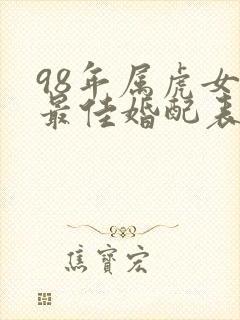 98年属虎女
最佳婚配表
焦寶宏